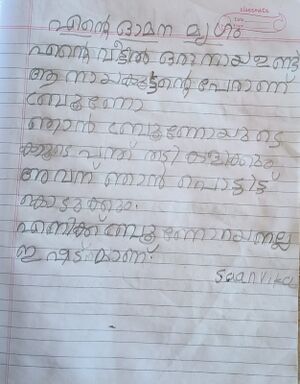 classmate
എന്റെ ഓമന മൃഗം
എന്റെ വീട്ടിൽ ഒരു നായ ഉണ്ട്
ആ നായക്കുട്ടന്റെ പേരാണ്
ബ്രൂണോ
ഞാൻ ബ്രൂണോയുടെ
കൂടെ പന്ത് തട്ടി കളിക്കാറുണ്ട്
അവന് ഞാൻ പെട്ടിട്ട്
കൊടുക്കും.
എനിക്ക് ബ്രൂണോയെ നല്ല
ഇഷ്ടമാണ്.
Saanvika